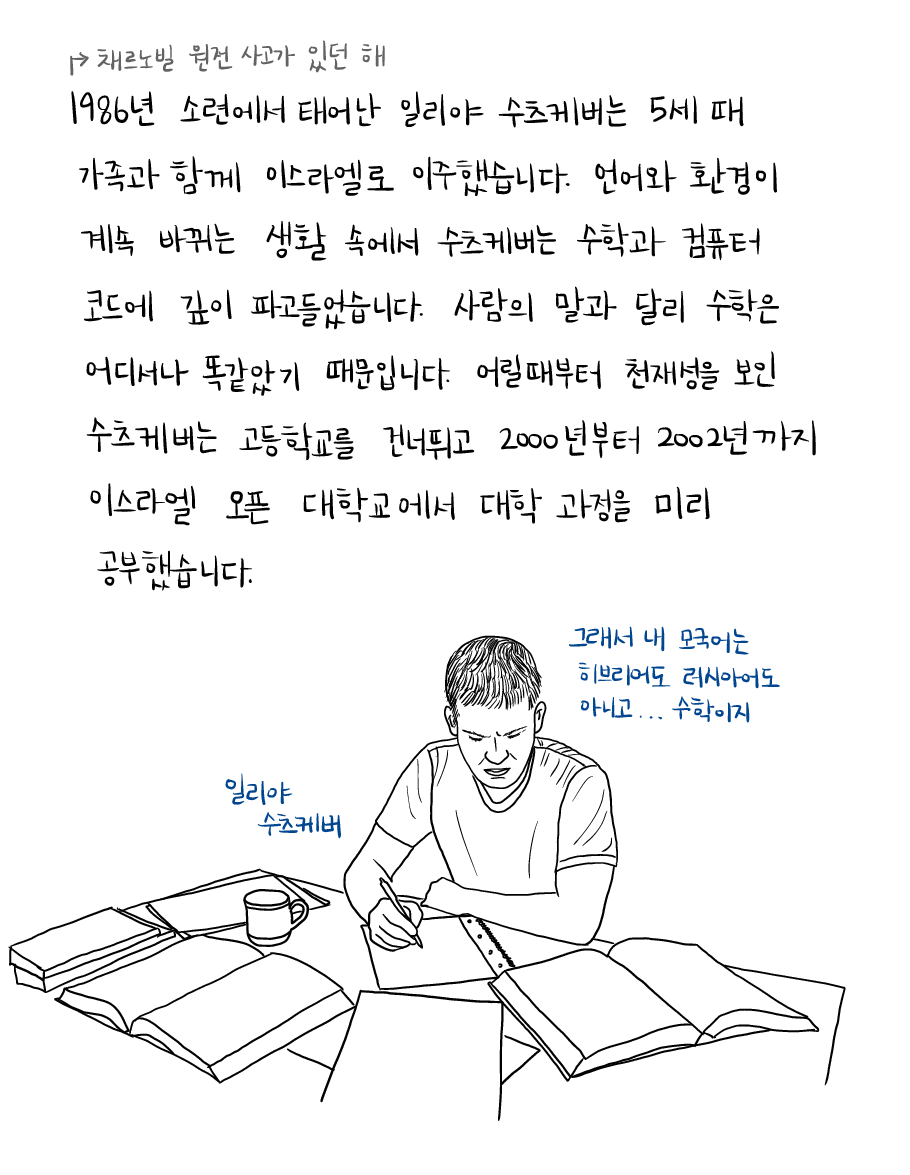 ↱ 채르노빌 원전 사고가 있던 해
1986년 소련에서 태어난 일리야 수츠케버는 5세 때
가족과 함께 이스라엘로 이주했습니다. 언어와 환경이
계속 바뀌는 생활 속에서 수츠케버는 수학과 컴퓨터
코드에 깊이 파고들었습니다. 사람의 말과 달리 수학은
어디서나 똑같았기 때문입니다. 어릴때부터 천재성을 보인
수츠케버는 고등학교를 건너뛰고 2000년부터 2002년까지
이스라엘 오픈 대학교에서 대학 과정을 미리
공부했습니다.
그래서 내 모국어는
히브리어도 러시아어도
아니고... 수학이지
일리야
수츠케버